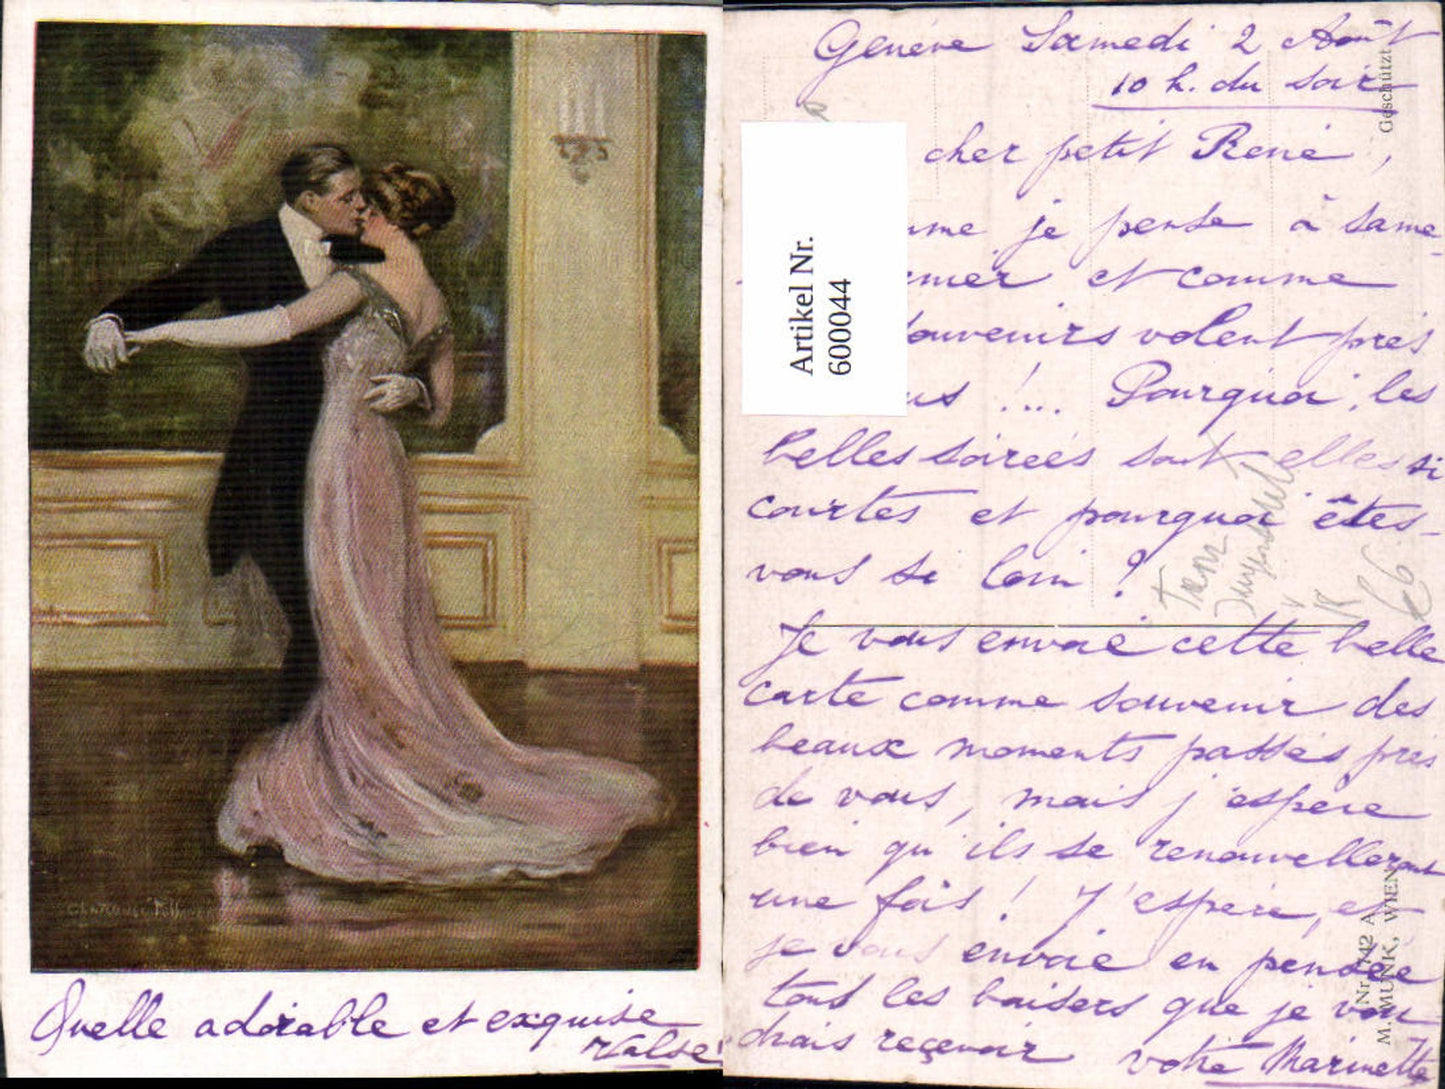 Quelle adorable et exquise
Valse !
Genève Samedi 2 Août
10 h. du soir
cher petit René,
je pense à same-
et comme
souvenirs volent près
!... Pourquoi les
belles soirées sont elles si
courtes et pourquoi êtes-
vous si loin ?
Je vous envoie cette belle
carte comme souvenir des
beaux moments passés près
de vous, mais j'espère
bien qu'ils se renouvelleront
une fois ! J'espère, et
je vous envoie en pensée
tous les baisers que je vou
drais recevoir votre Marinette
Artikel Nr.
600044
Geschützt
Nr. 742 A
M. MUNK, WIEN